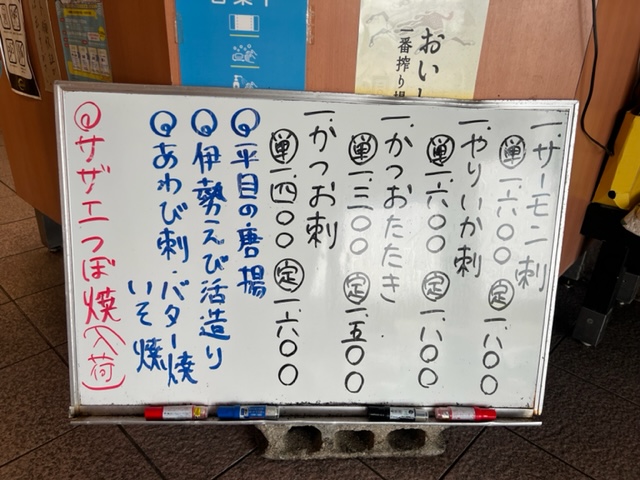 一、サーモン刺
単 一、六〇〇 定 一、八〇〇
一、やりいか刺
単 一、六〇〇 定 一、八〇〇
一、かつおたたき
単 一、三〇〇 定 一、五〇〇
一、かつお刺
単 一、四〇〇 定 一、六〇〇
平目の唐揚
伊勢えび活造り
あわび刺・バター焼
いそ焼
サザエつぼ焼(入荷)
おいし
一番搾り